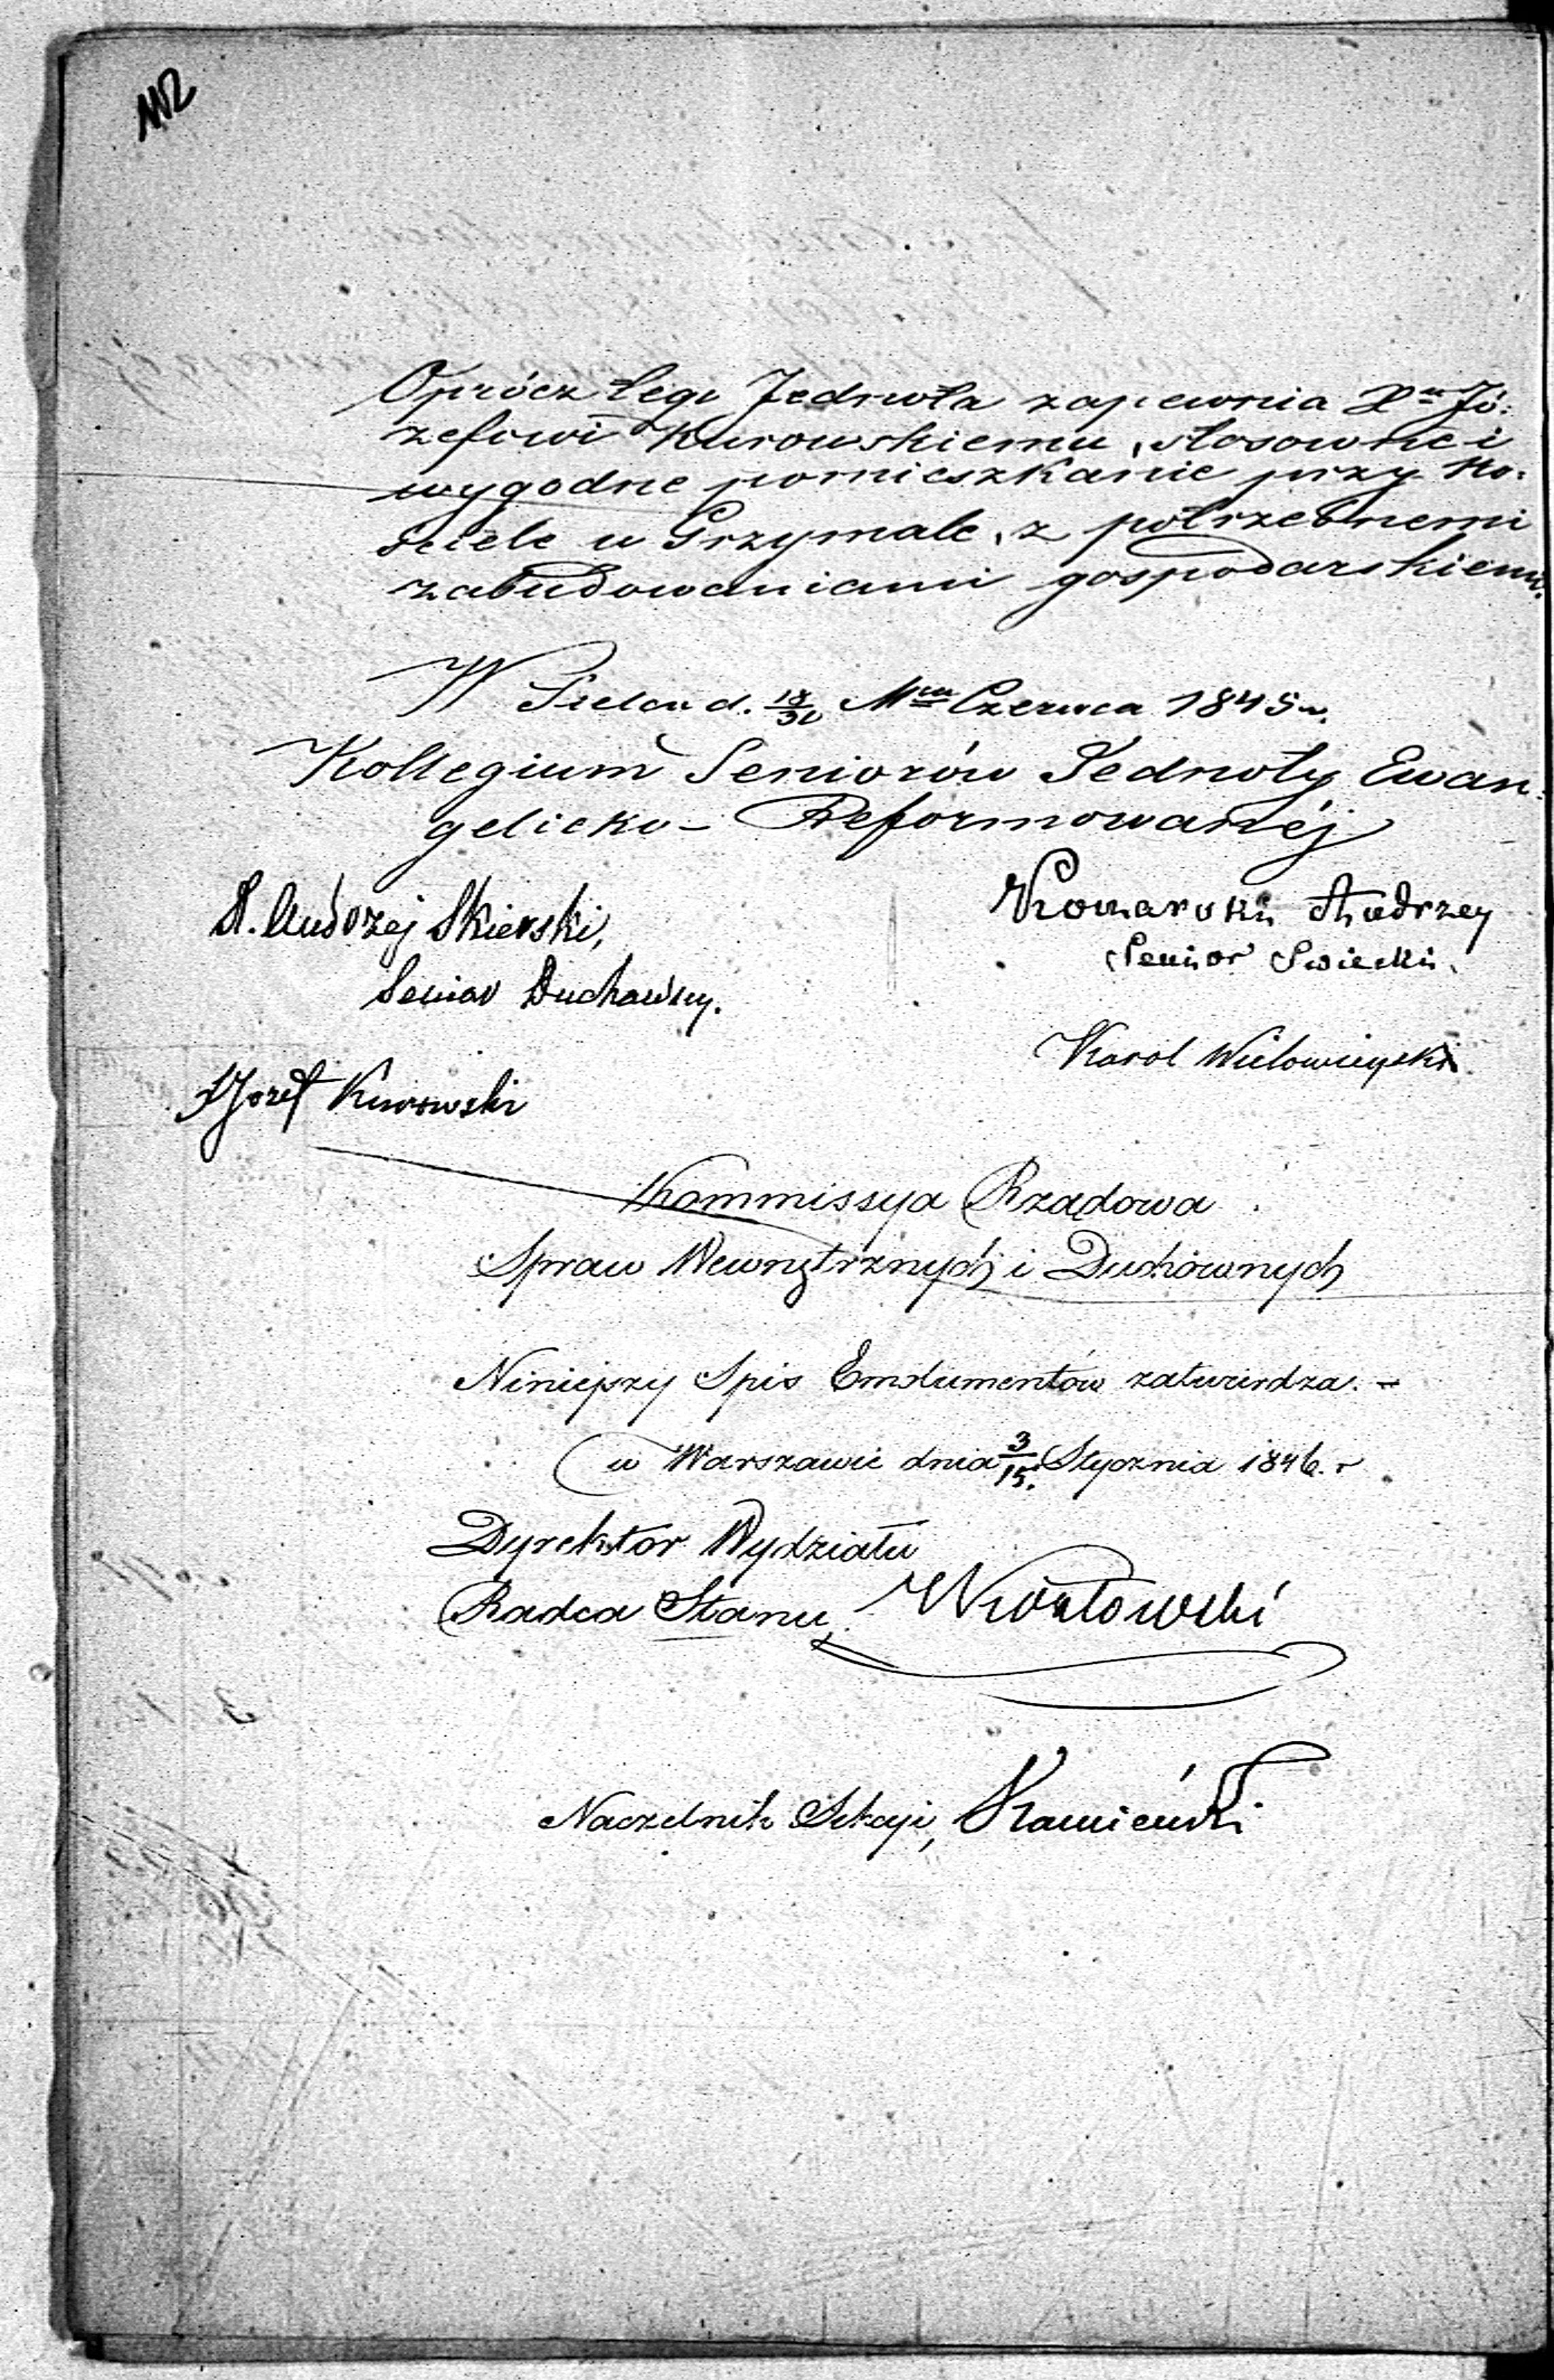 Oprócz tego Jednota zapewnia Xu Jó:
zefowi Kurowskiemu, stosowne i
wygodne pomieszkanie przy Ko:
ściele w Grzymale, z potrzebnemi
zabudowaniami gospodarskiemi.
W Sielcu d. 18/30 Mca Czerwca 1845 r.
Kollegium Seniorów Jednoty Ewan:
gelicko - Reformowanéj
X. Andrzej Skierski,
Senior Duchowny.
Konarski Andrzey
Senior Swiecki.
Karol Wielowieyski
X Jozef Kurowski
Kommissya Rządowa
Spraw Wewnętrznych i Duchównych
Niniejszy Spis Emolumentów zatwierdza. -
w Warszawie dnia 3/15. Stycznia 1846. r
Dyrektor Wydziału
Radca Stanu,
Naczelnik Sekcji, Kamieński